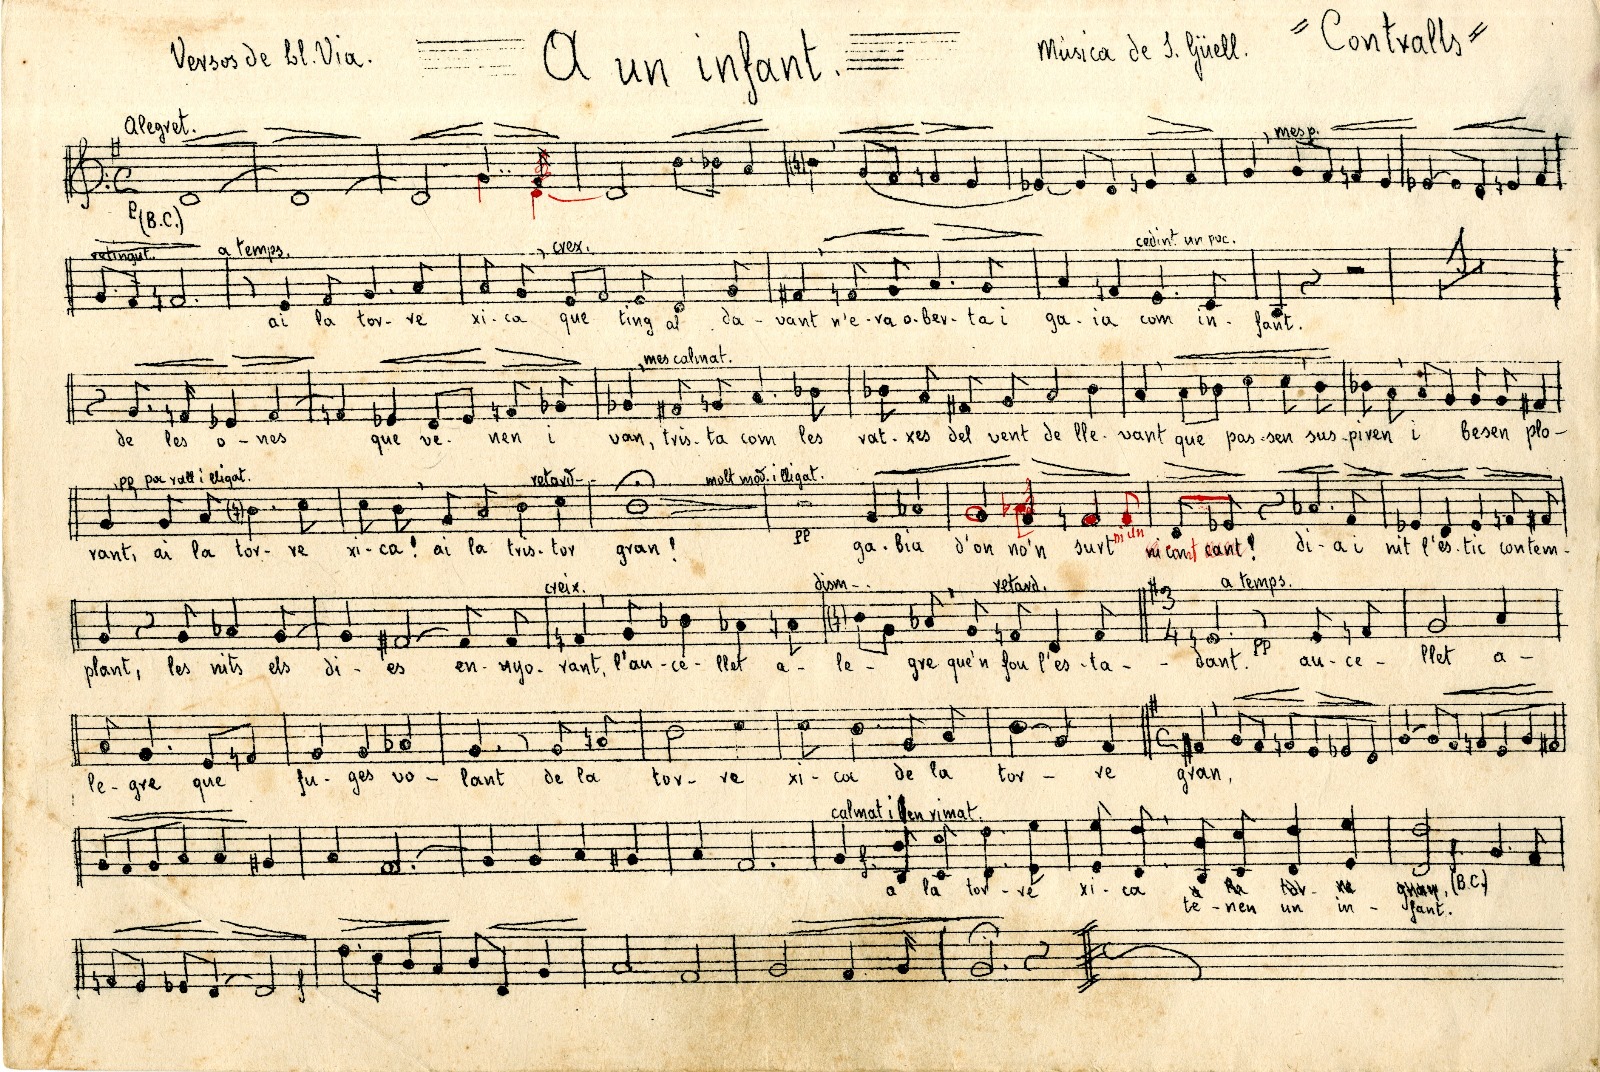 Versos de Ll. Via. A un infant. Música de J. Güell. "Contralls"
Alegret. mes p.
P (B.C.)
retingut. a temps. crex. cedint un poc. 1
ai la tor-re xi-ca que ting al da-vant n'e-ra o-ber-ta i ga-ia com in-fant.
mes calmat.
de les o-nes que ve-nen i van, tris-ta com les rat-xes del vent de lle-vant que pas-sen sus-piren i besen plo-
pp poc vall i lligat. retard- molt mod. i lligat.
rant, ai la tor-re xi-ca! ai la tris-tor gran! pp ga-bia d'on no'n surt ni un cant! di-a i nit l'es-tic contem-
creix. dism-. retard. a temps. 3 4
plant, les nits els di-es en-nyo-rant, l'au-ce-llet a-le-gre que'n fou l'es-ta-dant. pp au-ce-llet a-
le-gre que fu-ges vo-lant de la tor-re xi-ca de la tor-re gran,
calmat i ben rimat.
f. a la tor-re xi-ca (B.C.)
te-nen un in-fant.